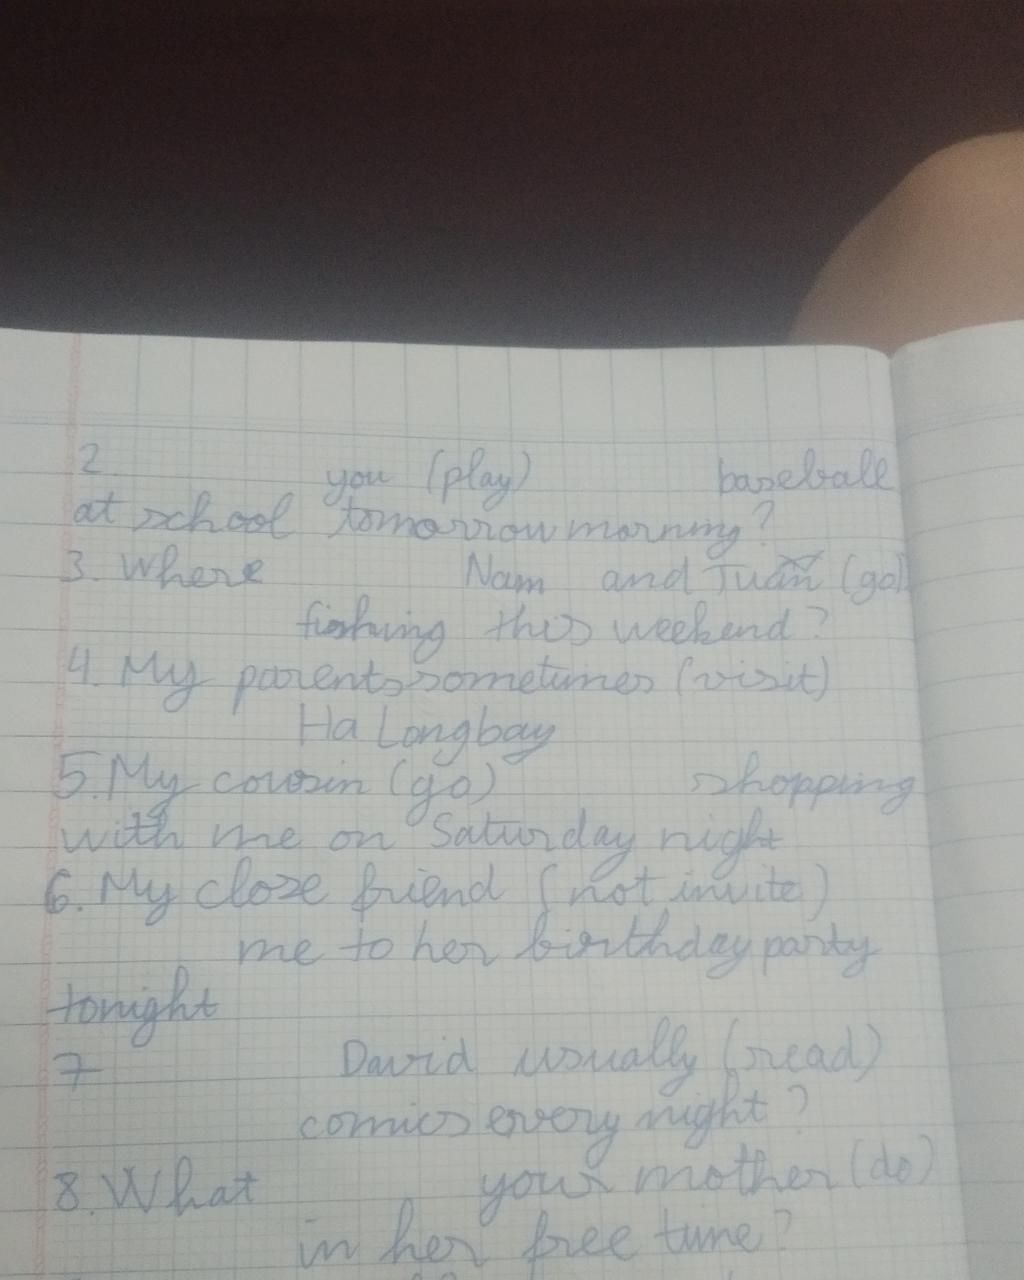 2. you (play) baseball
at school tomorrow morning?
3. Where Nam and Tuấn (go)
fishing this weekend?
4. My parents sometimes (visit)
Ha Long bay
5. My cousin (go) shopping
with me on Saturday night
6. My close friend (not invite)
me to her birthday party
tonight
7 David usually (read)
comics every night?
8. What your mother (do)
in her free time?